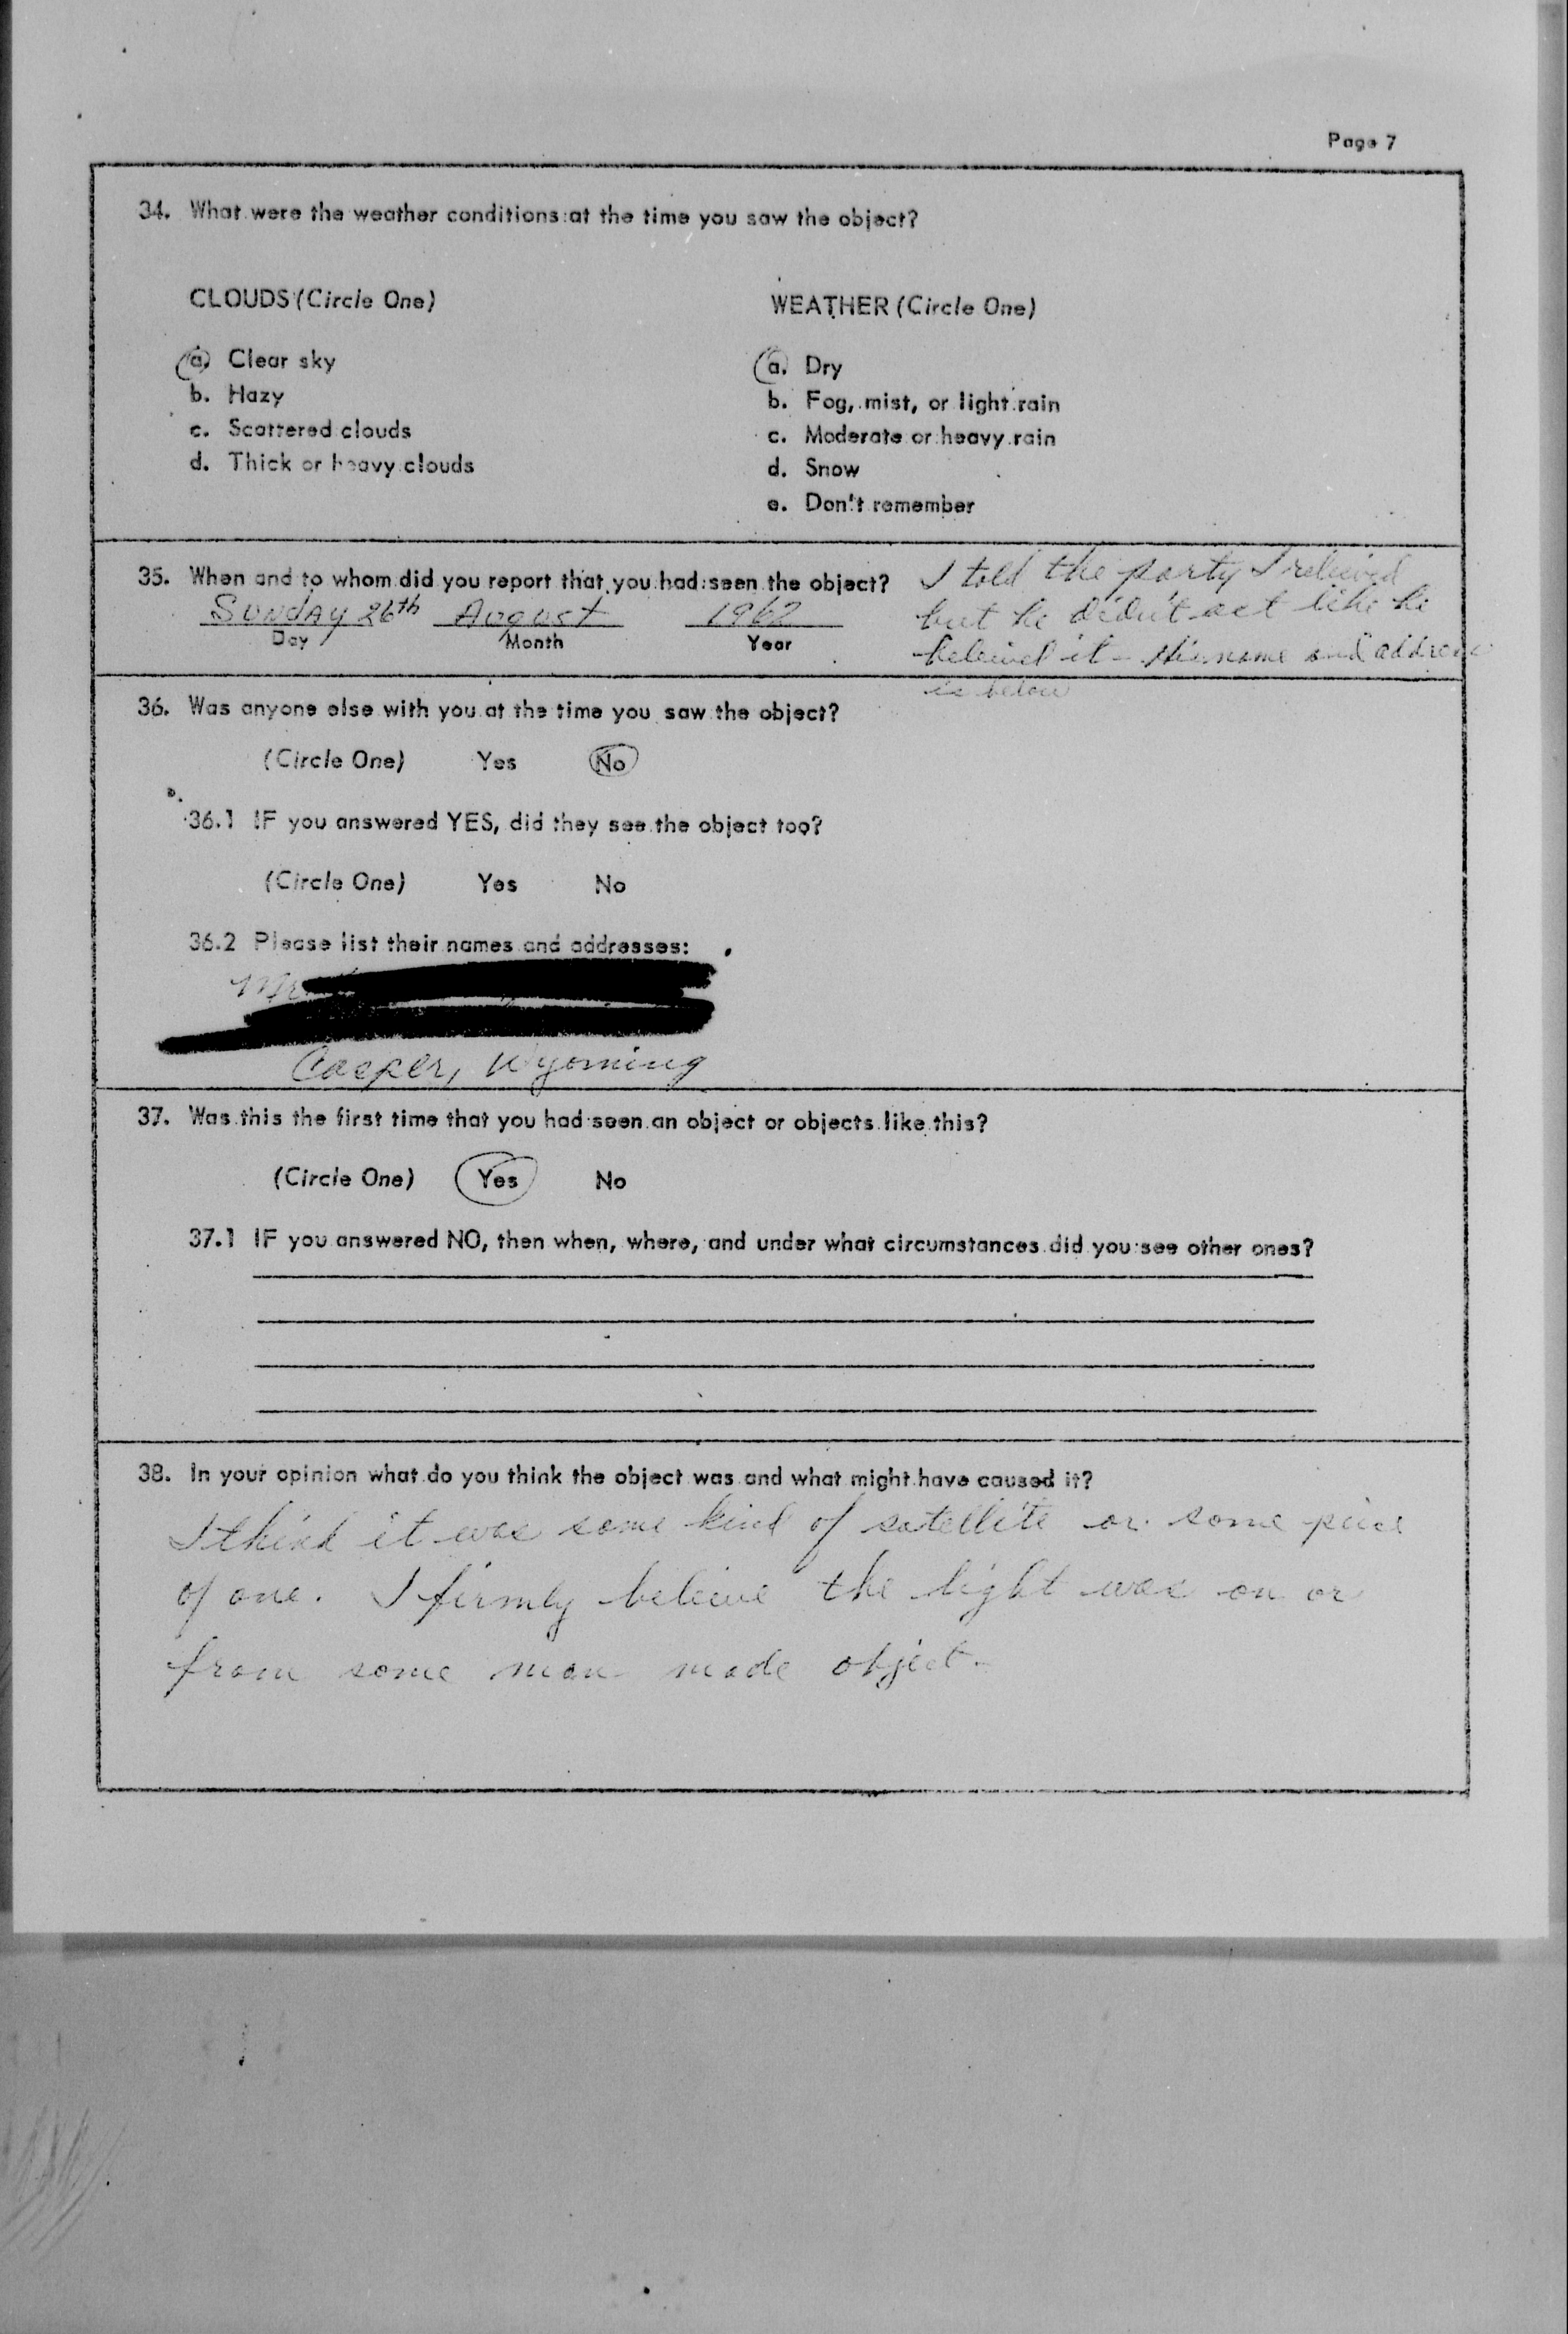 Page 7
34. What were the weather conditions at the time you saw the object?
CLOUDS (Circle One)
a. Clear sky
b. Hazy
c. Scattered clouds
d. Thick or heavy clouds
WEATHER (Circle One)
a. Dry
b. Fog, mist, or light rain
c. Moderate or heavy rain
d. Snow
e. Don't remember
35. When and to whom did you report that you had seen the object?
SUNDAY 26th August 1962
Day Month Year
I told the party I relieved
but he didn't act like he
beleived it - His name and address
is below
36. Was anyone else with you at the time you saw the object?
(Circle One) Yes No
36.1 IF you answered YES, did they see the object too?
(Circle One) Yes No
36.2 Please list their names and addresses:
Casper, Wyoming
37. Was this the first time that you had seen an object or objects like this?
(Circle One) Yes No
37.1 IF you answered NO, then when, where, and under what circumstances did you see other ones?
38. In your opinion what do you think the object was and what might have caused it?
I think it was some kind of satellite or some piece
of one. I firmly beleive the light was on or
from some man made object.